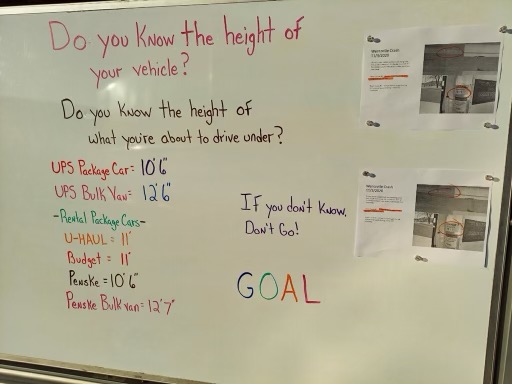 Do you know the height of
your vehicle?
Do you know the height of
what you're about to drive under?
UPS Package Car = 10'6"
UPS Bulk Van = 12'6"
-Rental Package Cars-
U-HAUL = 11'
Budget = 11'
Penske = 10'6"
Penske Bulk van = 12'7"
If you don't know,
Don't Go!
GOAL